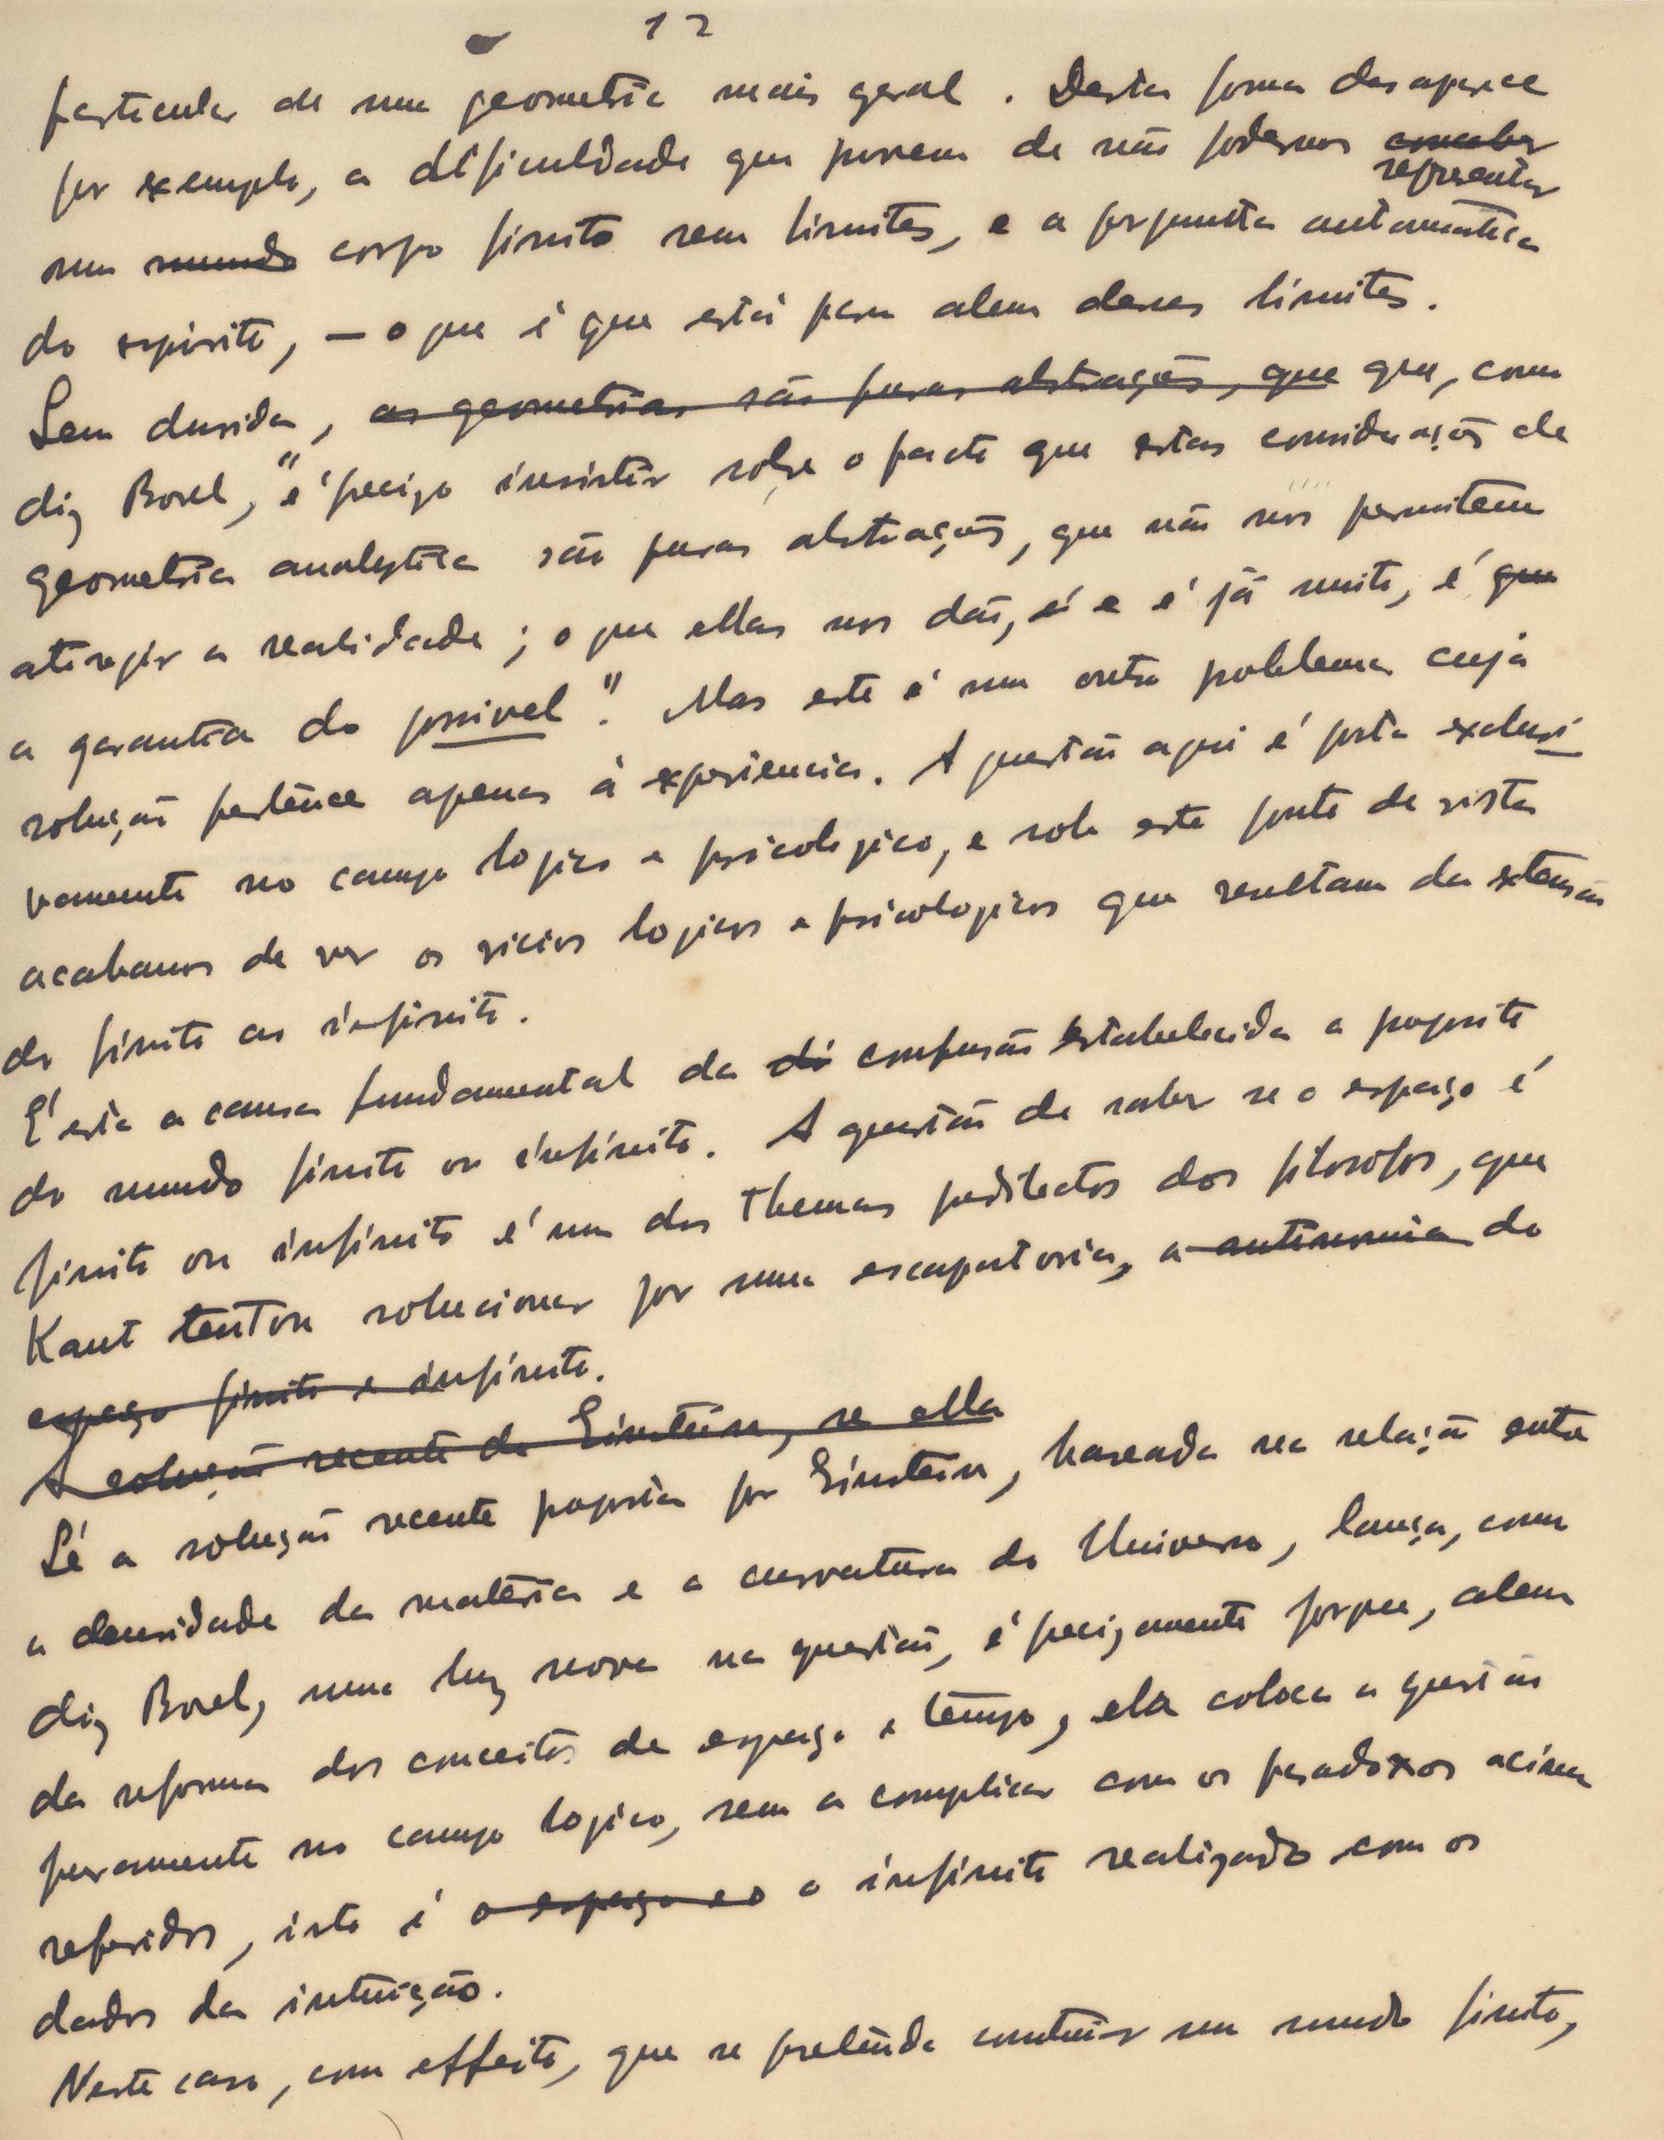 12
particular de uma geometria mais geral. Desta forma desaparece
por exemplo, a dificuldade que provem de não podermos conceber
representar
um mundo corpo finito sem limites, e a pergunta automatica
do espirito, — o que é que está para alem desses limites.
Sem duvida, as geometrias são puras abstrações, que que, como
diz Borel, "é preciso insistir sobre o facto que estas considerações de
geometria analytica são puras abstrações, que não nos permitem
atingir a realidade; o que ellas nos dão, é e é já muito, é que
a garantia do possivel". Mas este é um outro problema cuja
solução pertence apenas á experiencia. A questão aqui é posta exclusi
vamente no campo logico e psicologico, e sob este ponto de vista
acabamos de ver os vicios logicos e psicologicos que resultam da extensão
do finito ao infinito.
É esta a causa fundamental da di confusão estabelecida a proposito
do mundo finito ou infinito. A questão de saber se o espaço é
finito ou infinito é um dos themas predilectos dos filosofos, que
Kant tentou solucionar por uma escapatoria, a antinomia do
espaço finito e infinito.
A solução recente de Einstein, se ella
Sé a solução recente proposta por Einstein, baseada na relação entre
a densidade da materia e a curvatura do Universo, lança, como
diz Borel, uma luz nova na questão, é precizamente porque, alem
da reforma dos conceitos de espaço e tempo, ela coloca a questão
puramente no campo logico, sem a complicar com os paradoxos acima
referidos, isto é o espaço e o o infinito realizado com os
dados da intuição.
Neste caso, com effeito, que se pretenda construir um mundo finito,